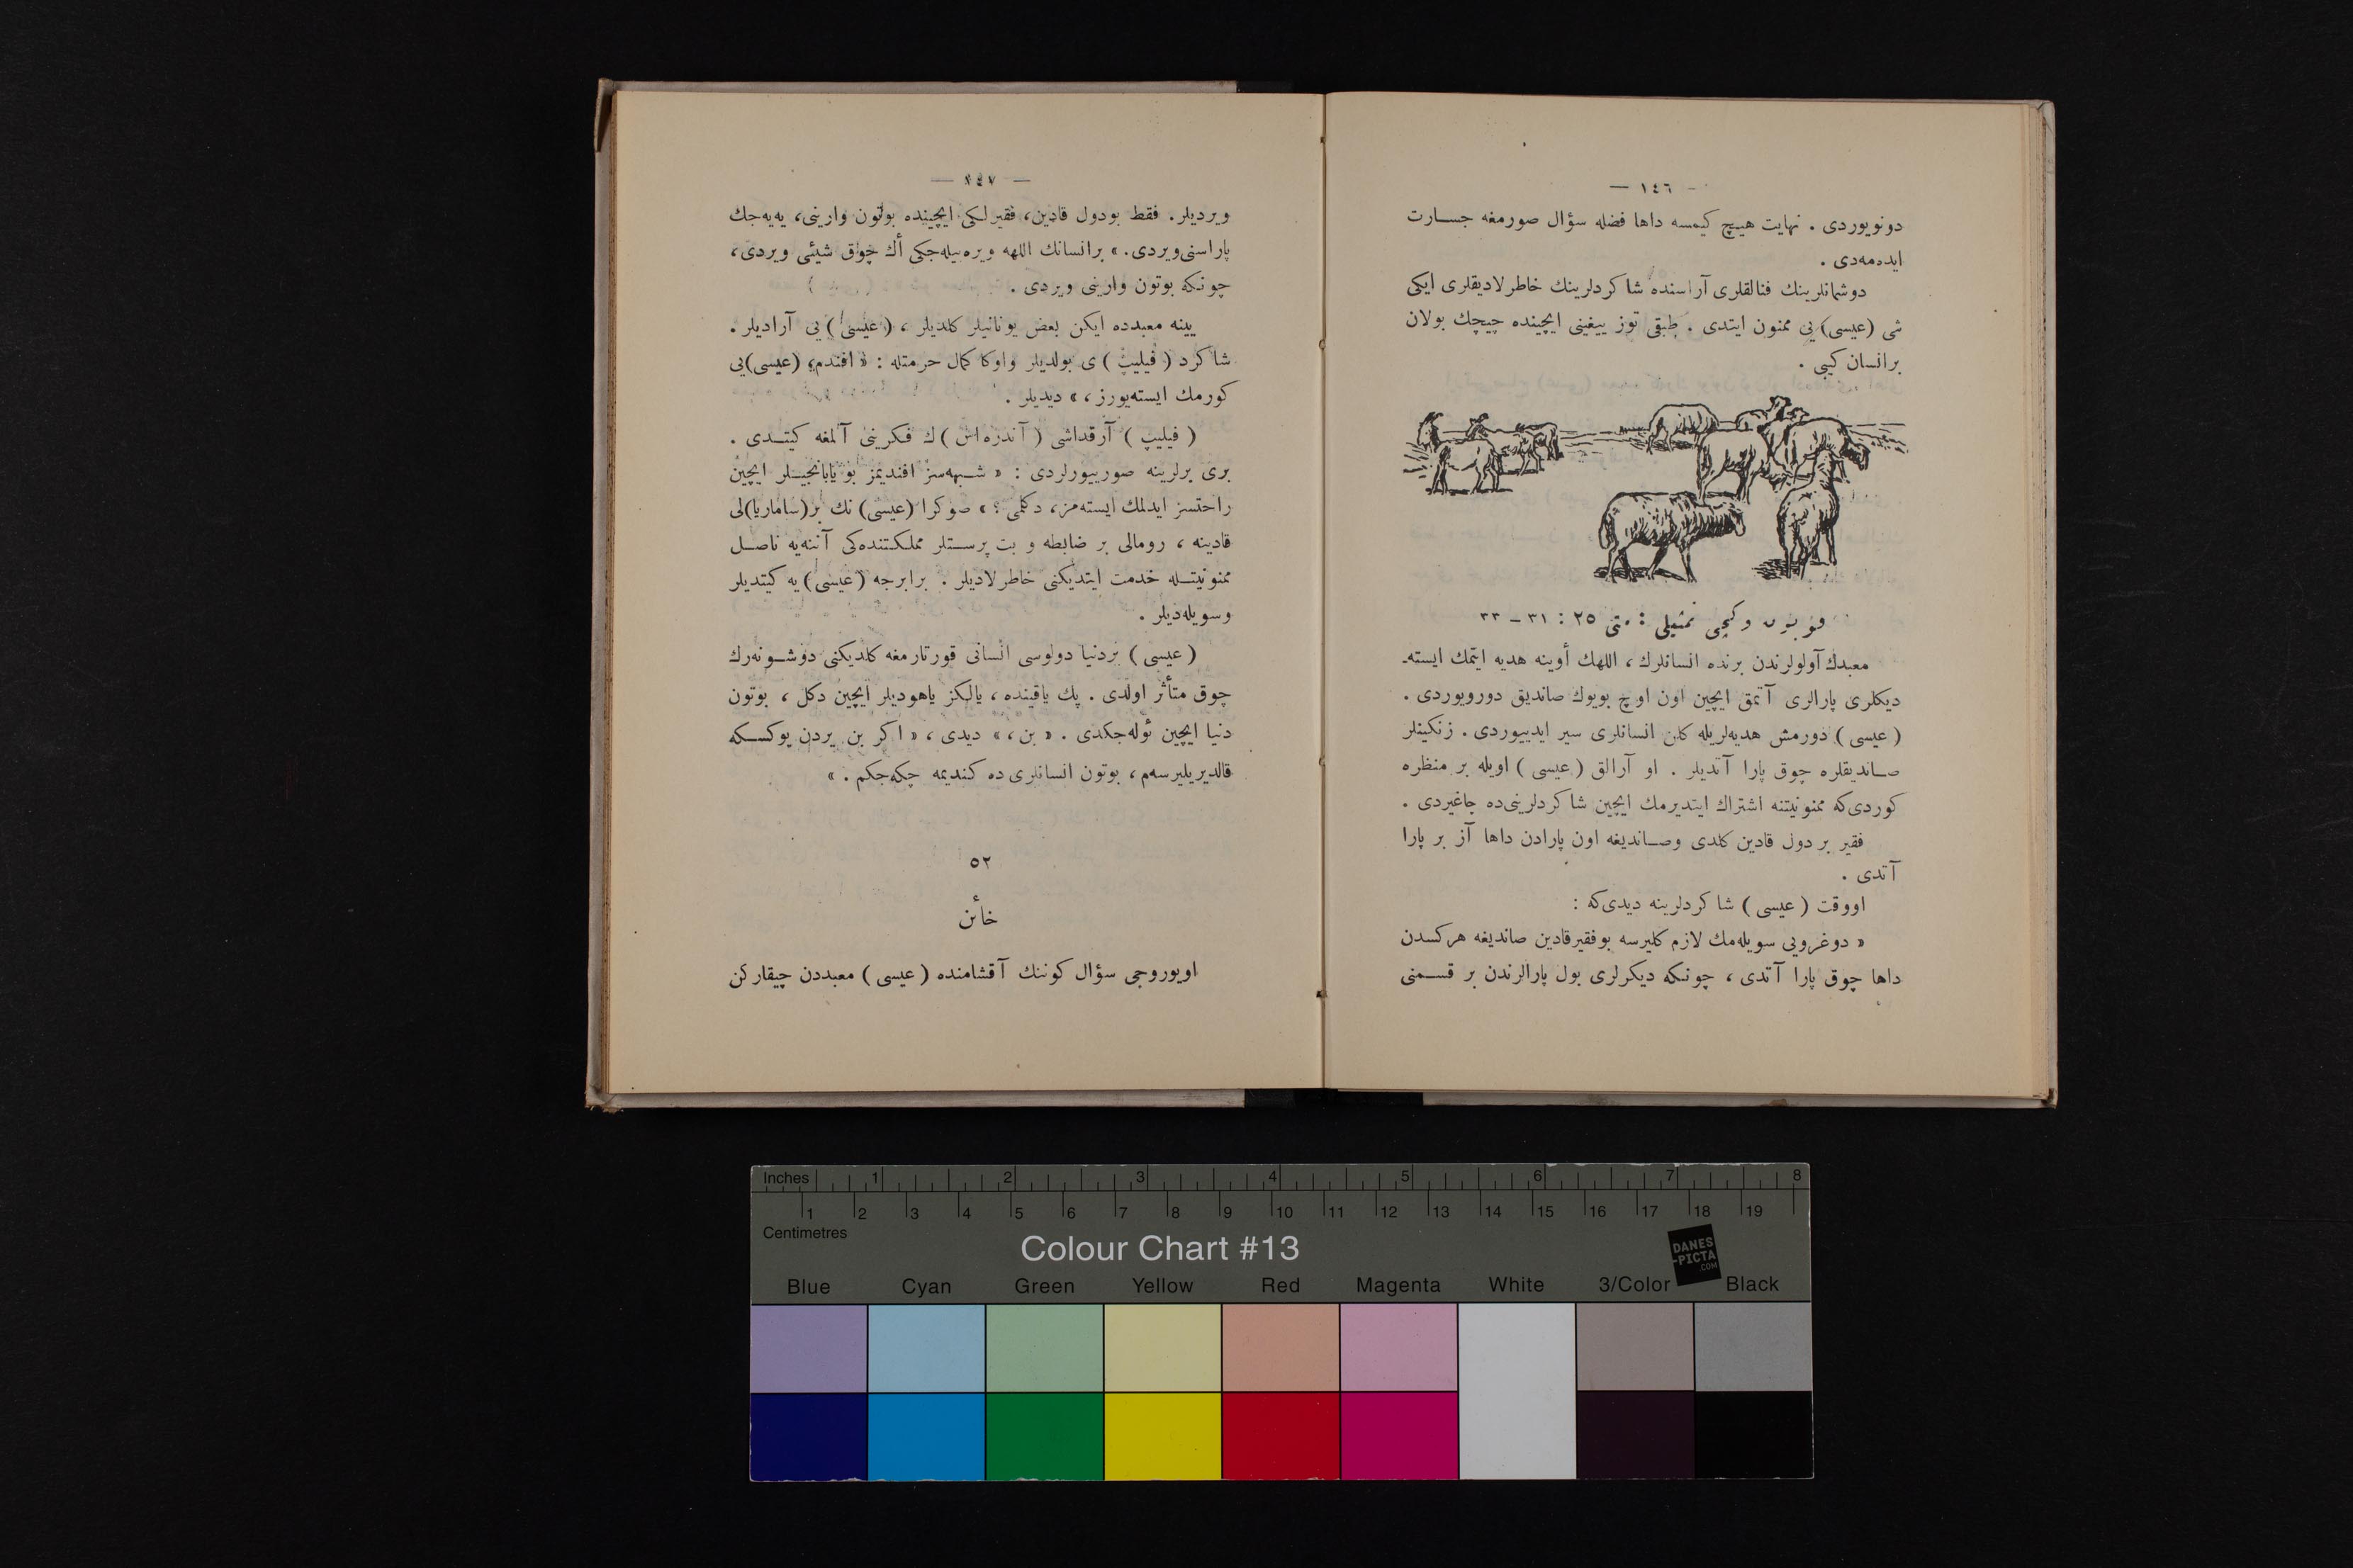 — ١٤٦ —
دونویوردی . نهایت هیچ کیمسه داها فضله سؤال صورمغه جسارت
ایده‌مه‌دی .
دوشمانلرینك فنالقلری آراسنده شاکردلرینك خاطرلادیقلری ایکی
شی (عیسی) یی ممنون ایتدی . طبقی توز ییغینی ایچینده چیچك بولان
برانسان کیبی .
قویون وکچی تمثیلی : متی ٢٥ : ٣١ – ٣٣
معبدك آولولرندن برنده انسانلرك ، اللهك أوینه هدیه ایتمك ایسته‌-
دیکلری پارالری آتمق ایچین اون اوچ بویوك صاندیق دورویوردی .
( عیسی ) دورمش هدیه‌لریله کلن انسانلری سیر ایدییوردی . زنکینلر
صاندیقلره چوق پارا آتدیلر . او آرالق ( عیسی ) اویله بر منظره
کوردی‌که ممنونیتنه اشتراك ایتدیرمك ایچین شاکردلرینی‌ده چاغیردی .
فقیر بر دول قادین کلدی وصاندیغه اون پارادن داها آز بر پارا
آتدی .
اووقت ( عیسی ) شاکردلرینه دیدی‌که :
« دوغرویی سویله‌مك لازم کلیرسه بوفقیرقادین صاندیغه هرکسدن
داها چوق پارا آتدی ، چونکه دیکرلری بول پارالرندن بر قسمنی
— ١٤٧ —
ویردیلر . فقط بودول قادین ، فقیرلکی ایچینده بوتون وارینی ، یه‌یه‌جك
پاراسنی‌ویردی . » برانسانك اللهه ویره‌بیله‌جکی أك چوق شیئی ویردی ،
چونکه بوتون وارینی ویردی .
یینه معبدده ایکن بعض یونانیلر کلدیلر ، ( عیسی ) یی آرادیلر .
شاکرد ( فیلیپ ) ی بولدیلر واوکا کمال حرمتله : « افندم ، (عیسی)یی
کورمك ایسته‌یورز ، » دیدیلر .
( فیلیپ ) آرقداشی ( آندره‌اس ) ك فکرینی آلمغه کیتدی .
بری برلرینه صورییورلردی : « شبهه‌سز افندیمز بو یابانجیلر ایچین
راحتسز ایدلمك ایسته‌مز ، دکلمی ؟ » صوکرا (عیسی) نك بر(ساماریا)لی
قادینه ، رومالی بر ضابطه و بت پرستلر مملکتنده‌کی آننه‌یه ناصل
ممنونیتله خدمت ایتدیکنی خاطرلادیلر . برابرجه (عیسی) یه کیتدیلر
وسویله‌دیلر .
( عیسی ) بردنیا دولوسی انسانی قورتارمغه کلدیکنی دوشونه‌رك
چوق متأثر اولدی . پك یاقینده ، یالکز یاهودیلر ایچین دکل ، بوتون
دنیا ایچین ئوله‌جکدی . « بن ، » دیدی ، « اکر بن یردن یوکسکه
قالدیریلیرسه‌م ، بوتون انسانلری ده کندیمه چکه‌جکم . »
٥٢
خائن
اویوروجی سؤال کوننك آقشامنده ( عیسی ) معبددن چیقارکن
Inches 1 2 3 4 5 6 7 8
1 2 3 4 5 6 7 8 9 10 11 12 13 14 15 16 17 18 19
Centimetres
Colour Chart #13
DANES
-PICTA
.COM
Blue Cyan Green Yellow Red Magenta White 3/Color Black